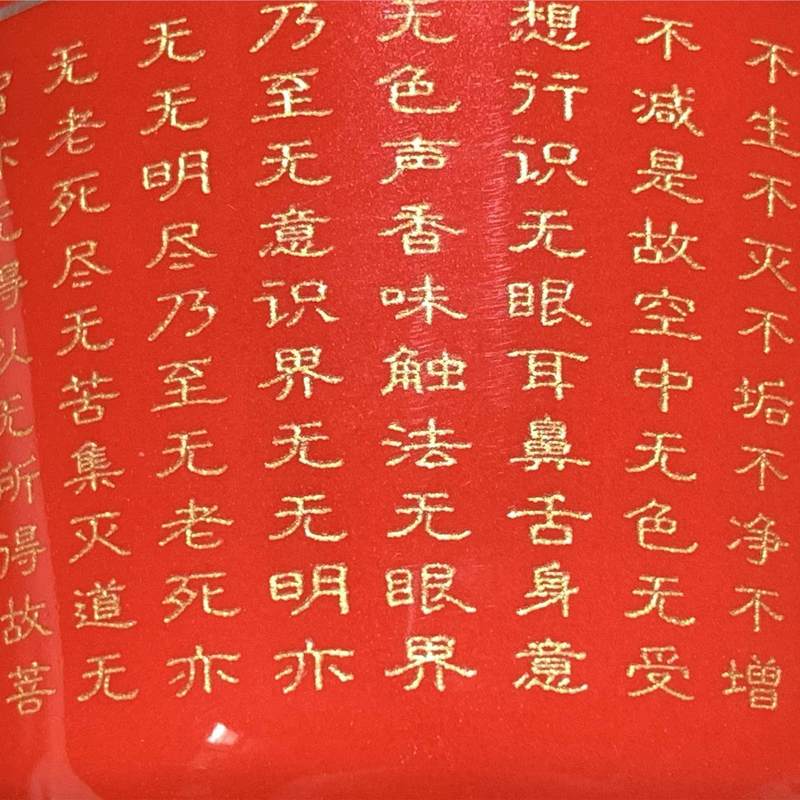 不生不灭不垢不净不增
不减是故空中无色无受
想行识无眼耳鼻舌身意
无色声香味触法无眼界
乃至无意识界无无明亦
无无明尽乃至无老死亦
无老死尽无苦集灭道无
智亦无得以无所得故菩